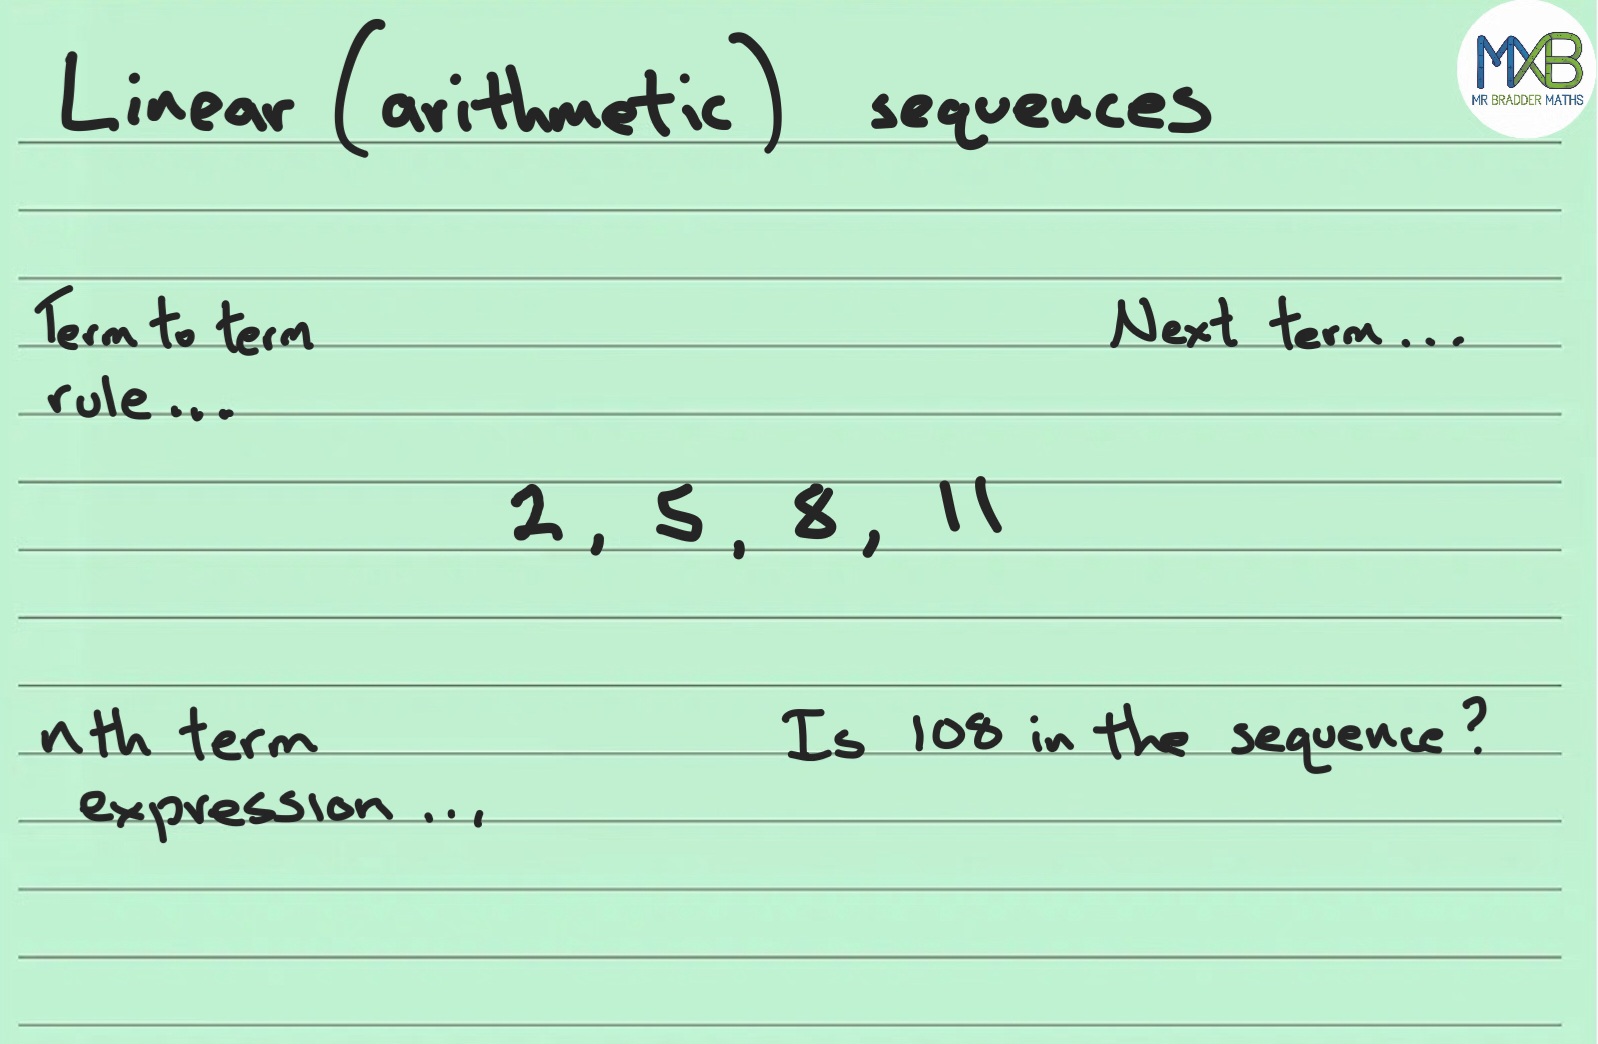 Linear (arithmetic) sequences
MXB
MR BRADDER MATHS
Term to term
rule...
Next term...
2, 5, 8, 11
nth term
expression...
Is 108 in the sequence?